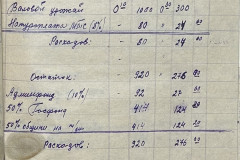 Валовой урожай 0³⁰ 1000 0³⁰ 300
Натуроплата МТС (8%) - 80 - 24 00
Расходов: - 80 - 24 00
Остаток: 920 - 276 00
Админфонд (10%) - 92 - 27
50% Госфонд - 414 - 124
50% общины на - 414 - 124
Расходов: 920 276